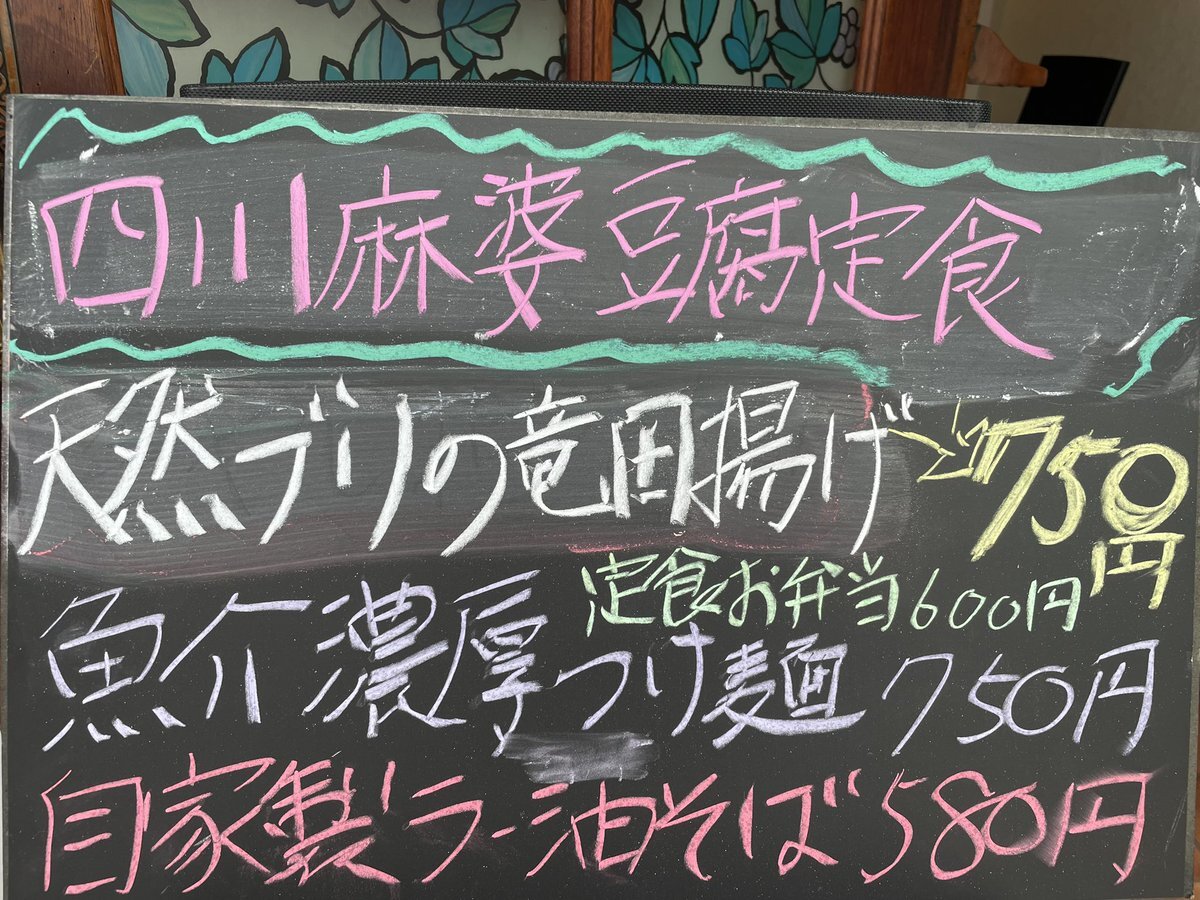 四川麻婆豆腐定食
天然ブリの竜田揚げ 750円
定食お弁当600円
魚介濃厚つけ麺 750円
自家製ラー油そば 580円